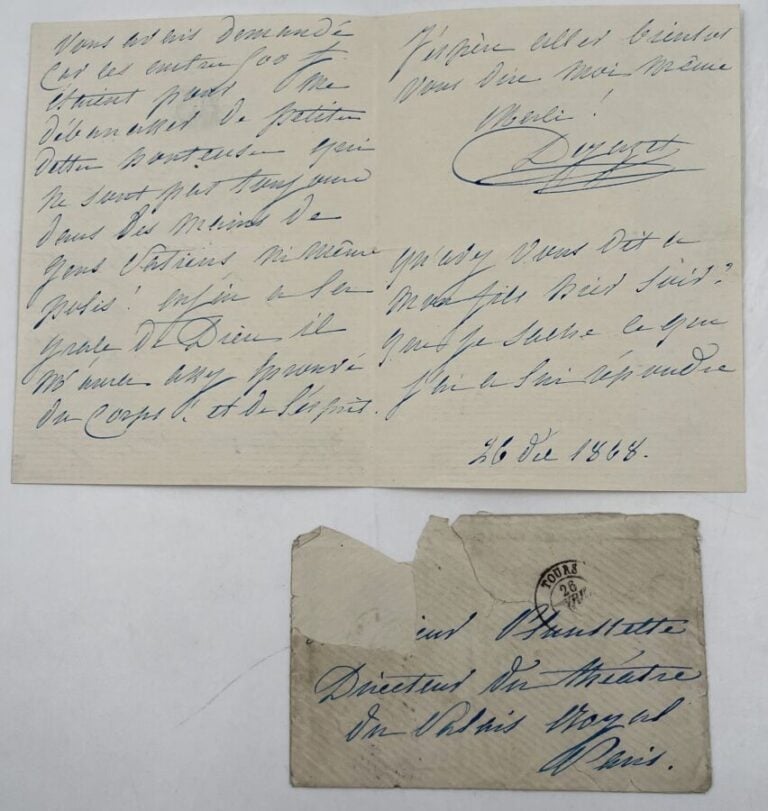 Vous avais demandé
car les autres 500 f
étaient pour me
débarasser de petites
dettes honteuses qui
ne sont pas toujours
dans des mains de
gens patiens ni même
polis! enfin a la
grace de Dieu il
m'aura assez éprouvé
du corps! et de l'esprit.
J'espère aller bientot
vous dire moi même
Merci!
Dejazet
qu'avez vous dit a
mon fils hier soir?
que je sache ce que
j'ai a lui répondre
26 1868.
TOURS
26
Directeur du théatre
du Palais Royal
Paris.